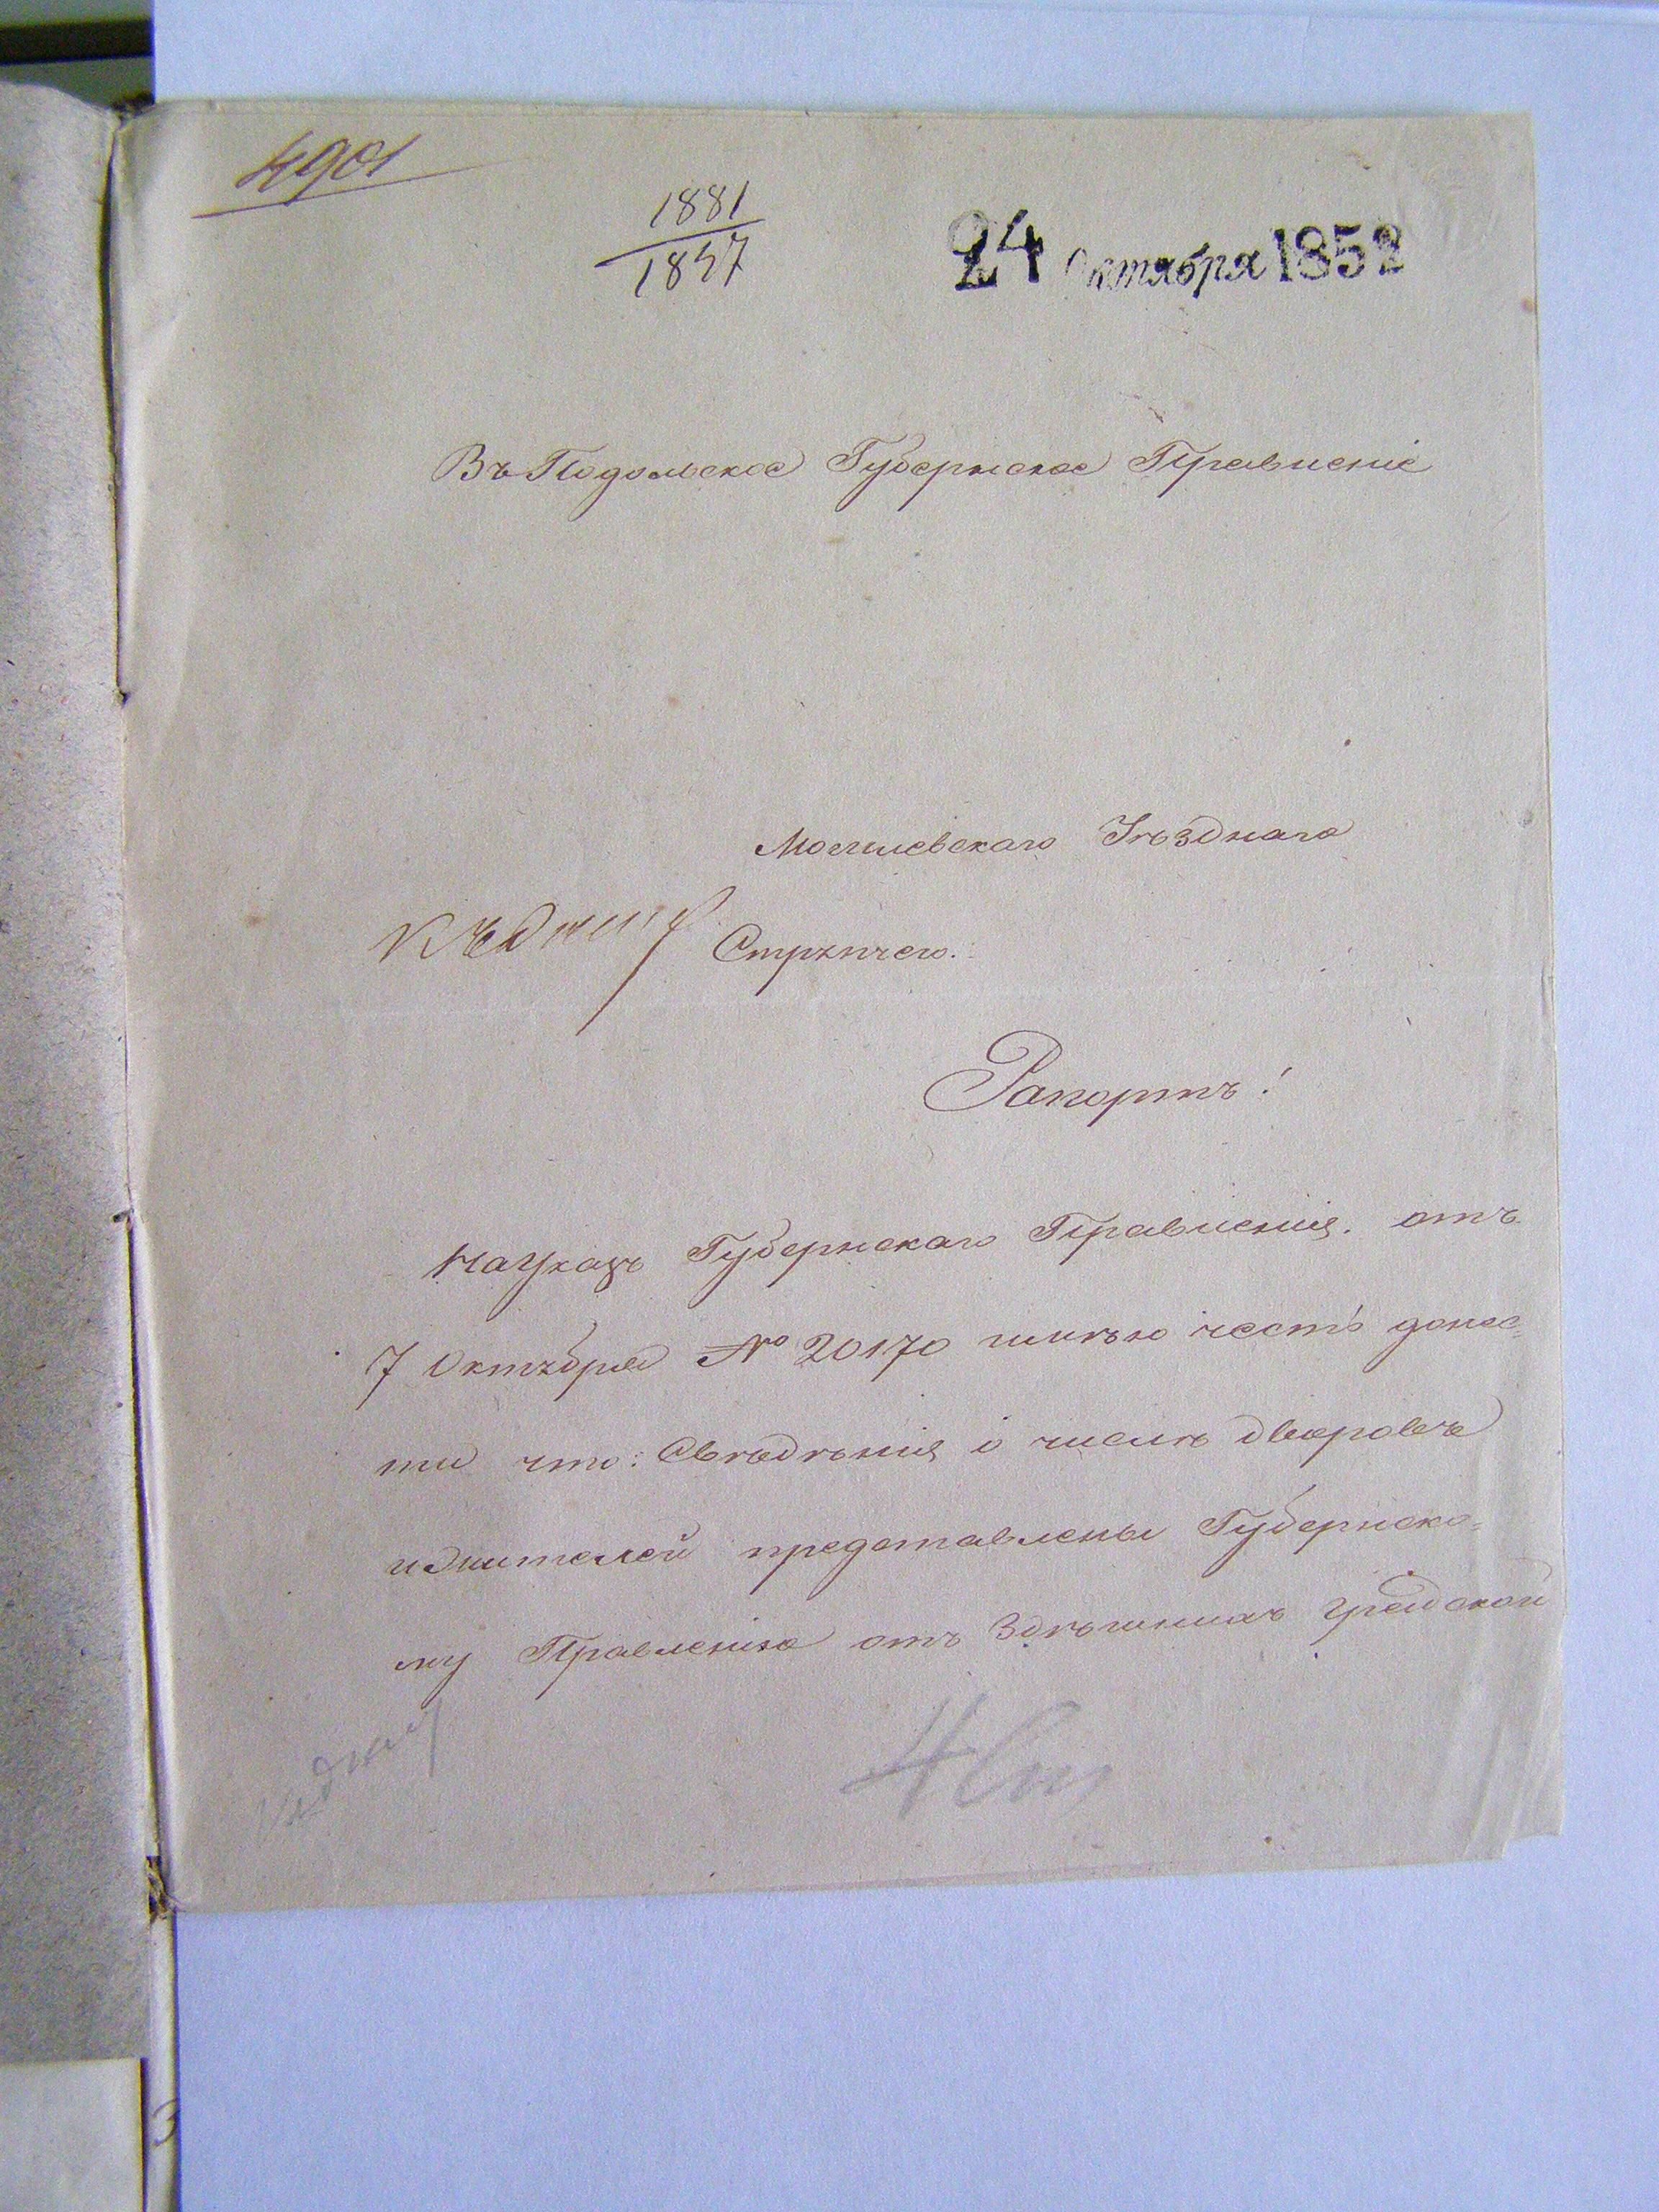 4901
1881
1847
24 Октября 1852
Въ Подольское Губернское Правленіе
Могилевскаго Уѣзднаго
Къ дѣлу Стряпчего.
Рапортъ!
На Указъ Губернскаго Правленія. отъ
7 Октября № 20170 имѣю честь донес=
ти что: Свѣдѣнія о числѣ дворовъ
и жителей представлены Губернско=
му Правленію отъ Здѣшнихъ Градской